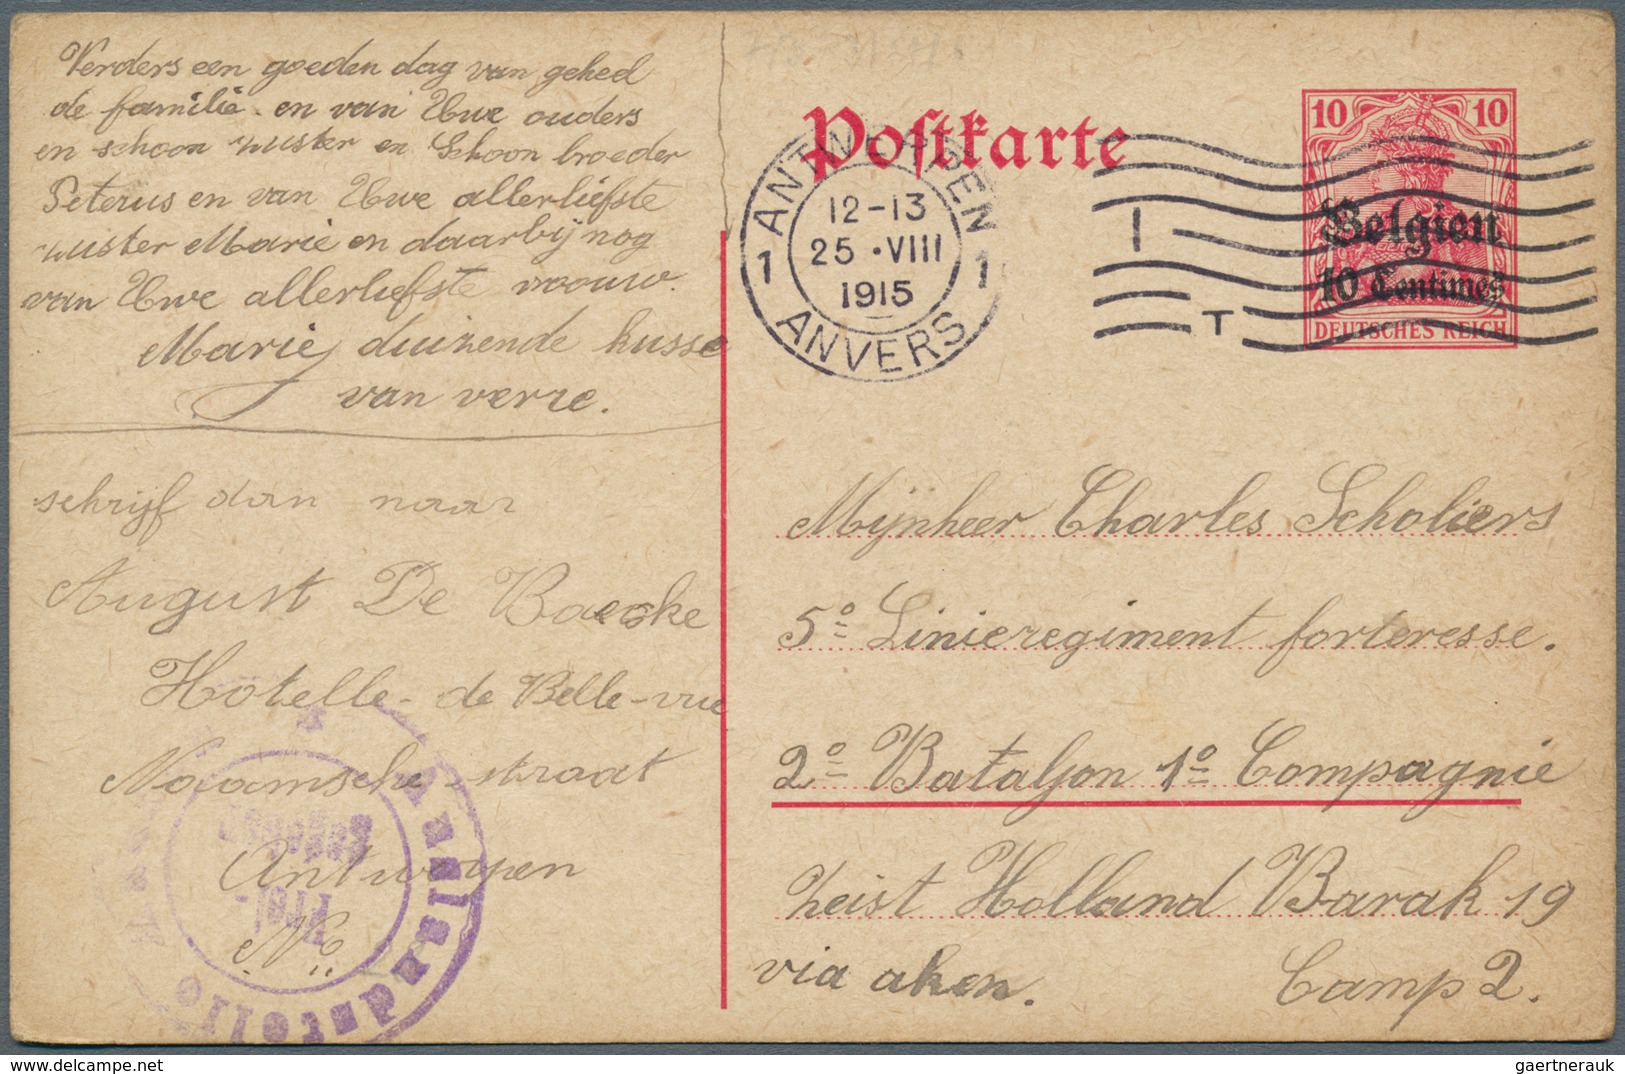 Verders een goeden dag van geheel
de familie en van Uwe ouders
en schoon zuster en Schoon broeder
Peterus en van Uwe allerliefste
zuster Marie en daarbij nog
van Uwe allerliefste vrouw.
Marie duizende kusse
van verre.
schrijf dan naar
August De
Hotelle-de Belle-vue
Naamsche straat
Antwerpen
Auslandstelle
Postkarte
ANTWERPEN
1 1
12-13
25 •VIII
1915
ANVERS
10 10
Belgien
10 Centimes
DEUTSCHES REICH
Mijnheer Charles Scholiers
5° Linieregiment forteresse.
2° Bataljon 1° Compagnie
Zeist Holland Barak 19
via aken. Camp 2.
delcampe.net
gaertnerauk